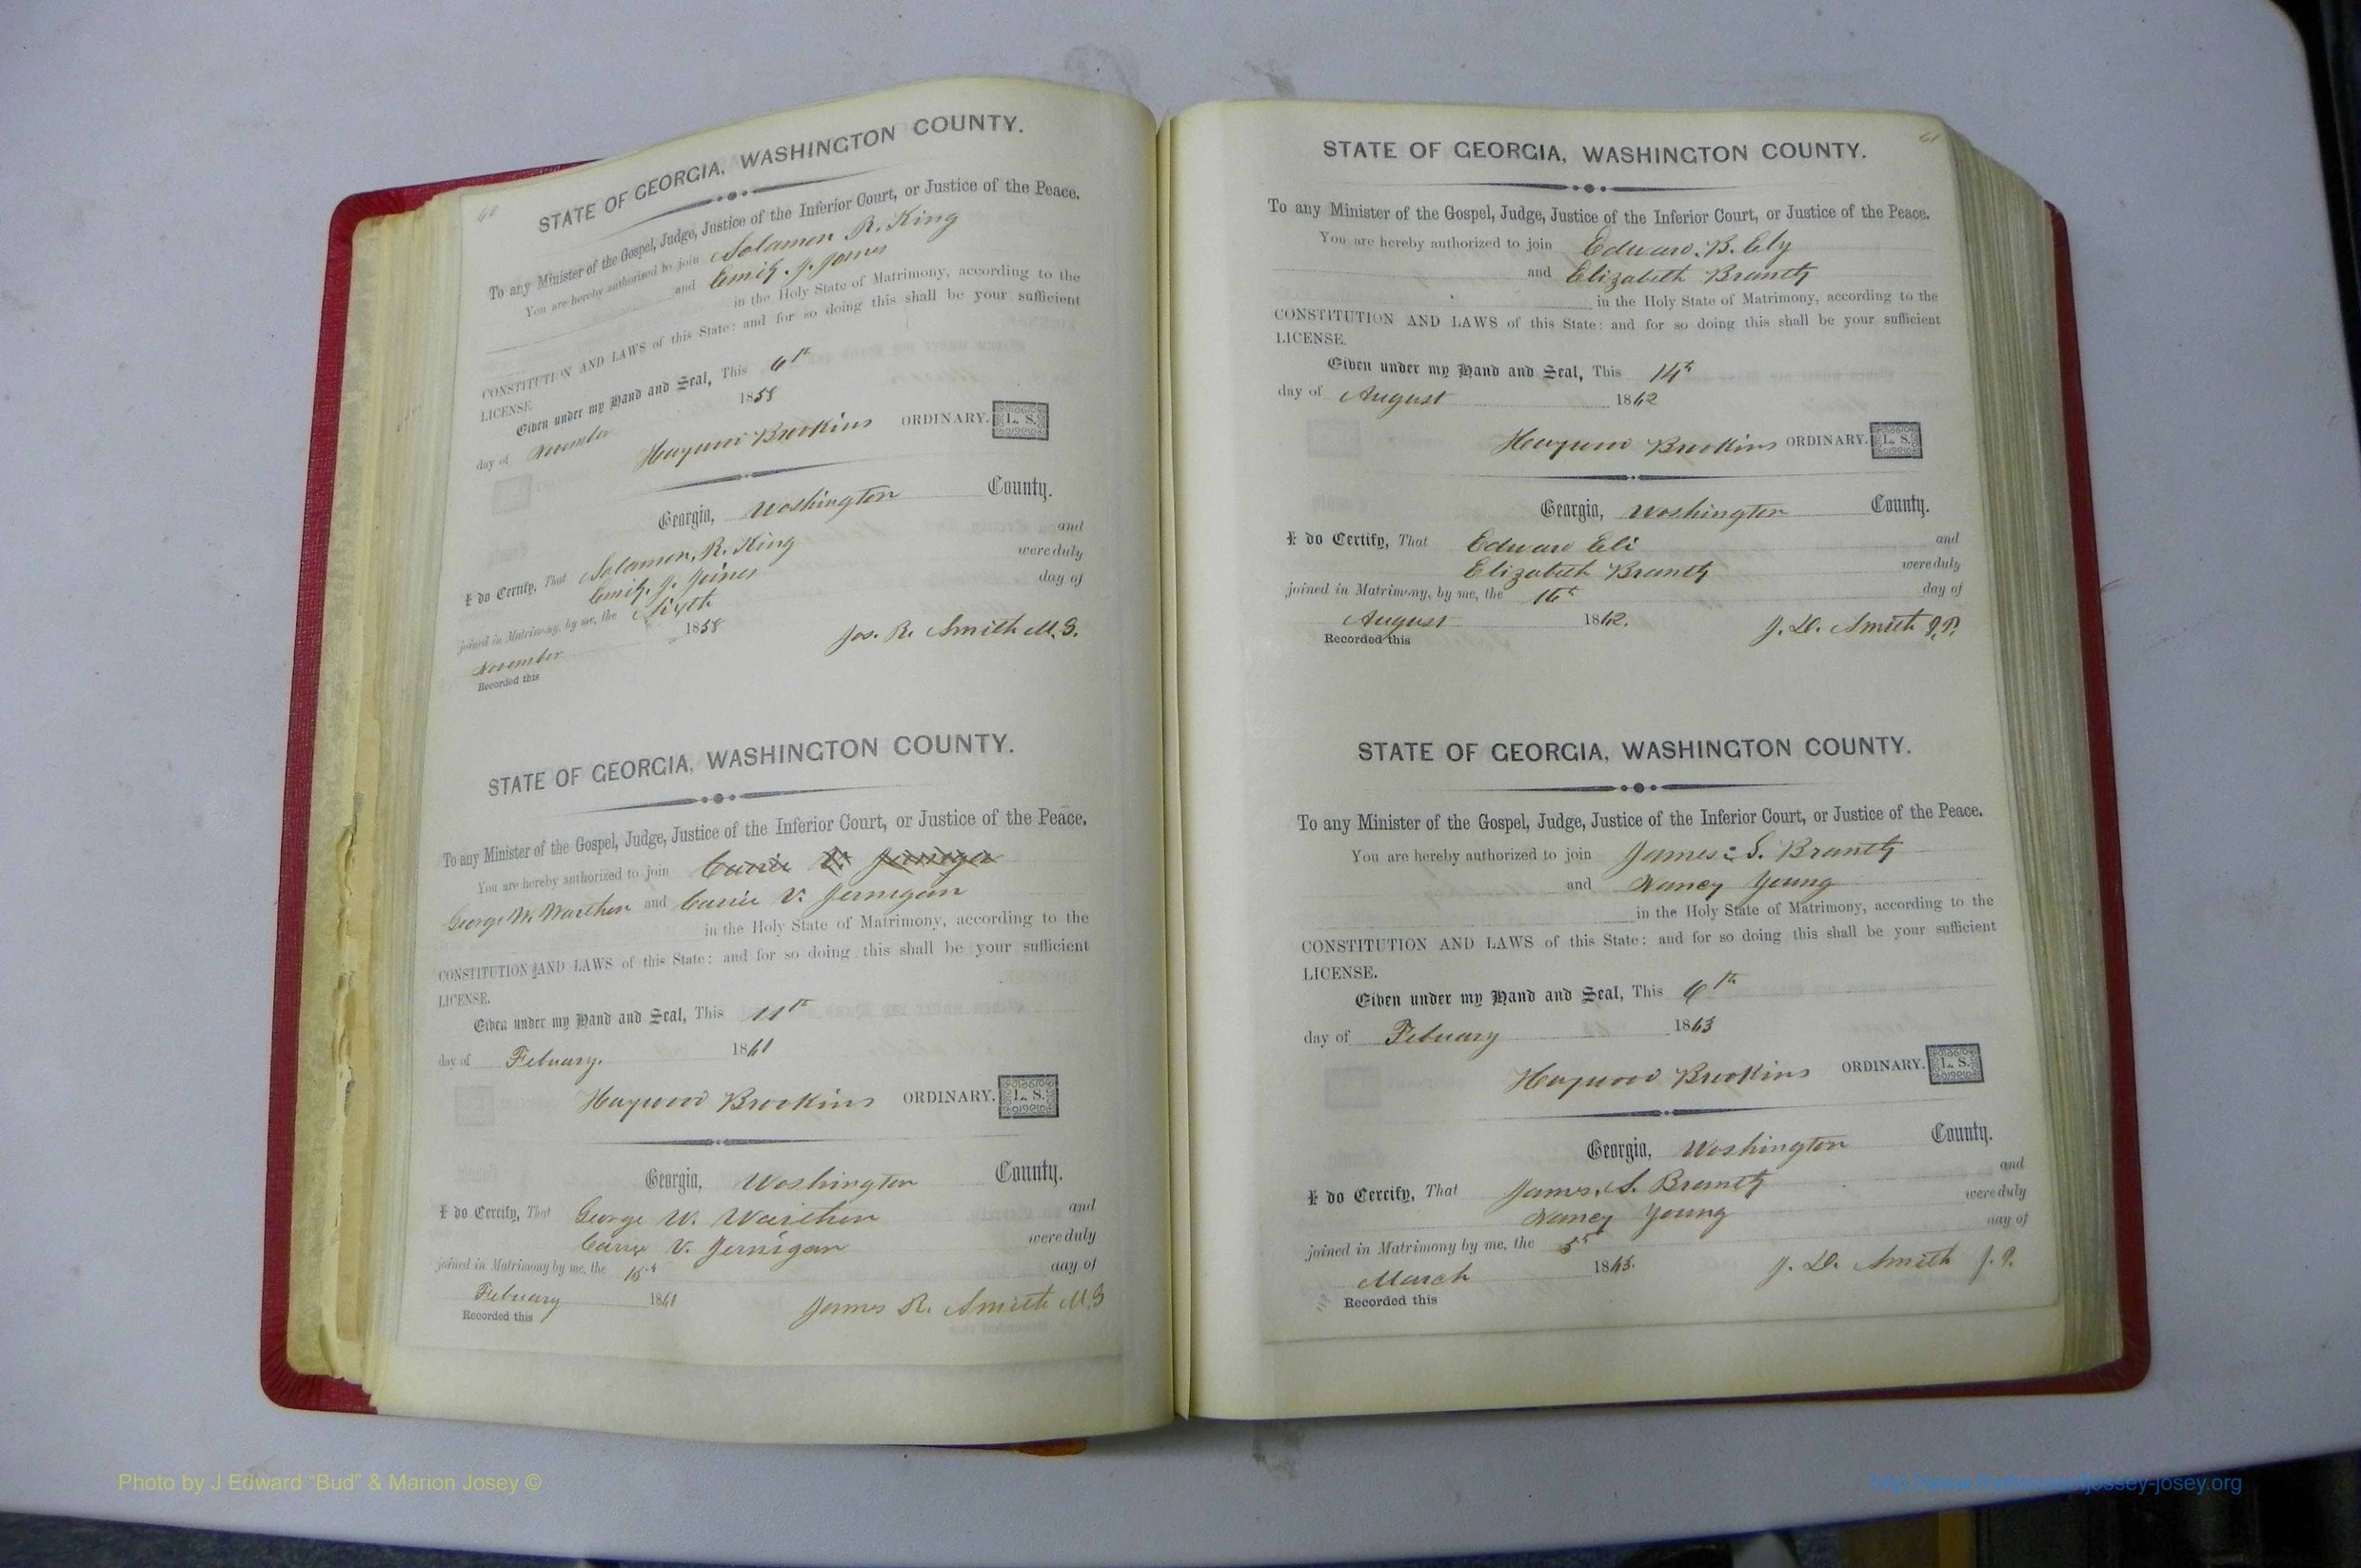 60
STATE OF GEORGIA, WASHINGTON COUNTY.
To any Minister of the Gospel, Judge, Justice of the Inferior Court, or Justice of the Peace.
You are hereby authorised to join Solamon R. King
and Emily. J. Joines
in the Holy State of Matrimony, according to the
CONSTITUTION AND LAWS of this State: and for so doing this shall be your sufficient
LICENSE.
Given under my Hand and Seal, This 6th
day of November 1858
Haywood Brookins ORDINARY. L. S.
Georgia, Washington County.
I do Certify, That Solamon. R. King and
Emily. J. Joines were duly
joined in Matrimony, by me, the Sixth day of
November 1858 Jas. R. Smith M. G.
Recorded this
STATE OF GEORGIA, WASHINGTON COUNTY.
To any Minister of the Gospel, Judge, Justice of the Inferior Court, or Justice of the Peace.
You are hereby authorized to join Carrie V. Jernigan
George W. Warthen and Carrie V. Jernigan
in the Holy State of Matrimony, according to the
CONSTITUTION AND LAWS of this State: and for so doing this shall be your sufficient
LICENSE.
Given under my Hand and Seal, This 11th
day of Febuary. 1861
Haywood Brookins ORDINARY. L. S.
Georgia, Washington County.
I do Certify, That George W. Warthen and
Carrie V. Jernigan were duly
joined in Matrimony by me, the 15th day of
Febuary 1861 James R. Smith M. G
Recorded this
61
STATE OF GEORGIA, WASHINGTON COUNTY.
To any Minister of the Gospel, Judge, Justice of the Inferior Court, or Justice of the Peace.
You are hereby authorized to join Edward. B. Ely
and Elizabeth Brantly
in the Holy State of Matrimony, according to the
CONSTITUTION AND LAWS of this State: and for so doing this shall be your sufficient
LICENSE.
Given under my Hand and Seal, This 14th
day of August 1862
Haywood Brookins ORDINARY. L. S.
Georgia, Washington County.
I do Certify, That Edward Eli and
Elizabeth Brantly were duly
joined in Matrimony, by me, the day of
August 1862. J. D. Smith J. P.
Recorded this
STATE OF GEORGIA, WASHINGTON COUNTY.
To any Minister of the Gospel, Judge, Justice of the Inferior Court, or Justice of the Peace.
You are hereby authorized to join James: S. Brantly
and Nancy Young
in the Holy State of Matrimony, according to the
CONSTITUTION AND LAWS of this State: and for so doing this shall be your sufficient
LICENSE.
Given under my Hand and Seal, This 6th
day of Febuary 1863
Haywood Brookins ORDINARY. L. S.
Georgia, Washington County.
I do Certify, That James. S. Brantly and
Nancy Young were duly
joined in Matrimony by me, the 5th day of
March 1863. J. D. Smith J. P.
Recorded this
Photo by J Edward “Bud” & Marion Josey ©